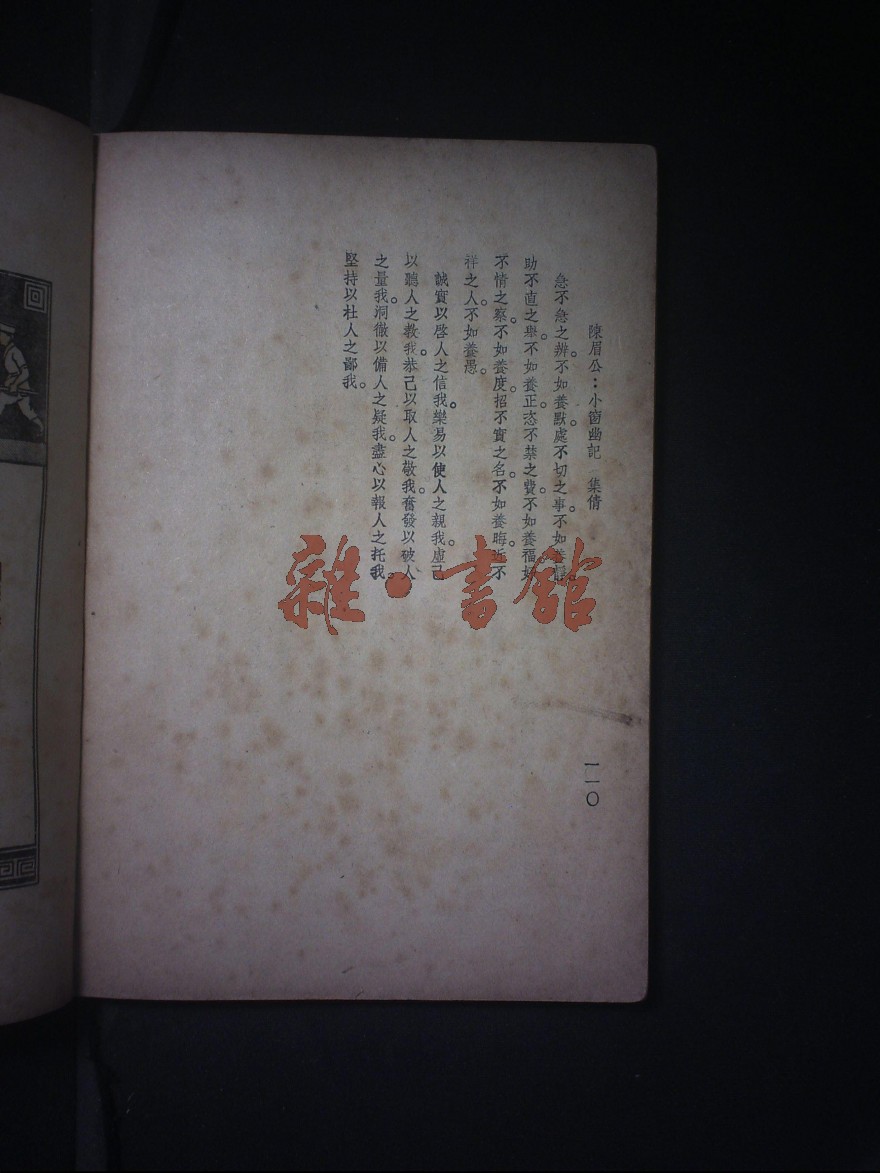 陳眉公：小窗幽記　集倩
急不急之辨。不如養默。處不切之事。不如養靜。
助不直之舉。不如養正。恣不禁之費。不如養福。好
不情之察。不如養度。招不實之名。不如養晦。近不
祥之人。不如養愚。
誠實以啓人之信我。樂易以使人之親我。虛己
以聽人之教我。恭己以取人之敬我。奮發以破人
之量我。洞徹以備人之疑我。盡心以報人之托我。
堅持以杜人之鄙我。
一一〇
雜·書館